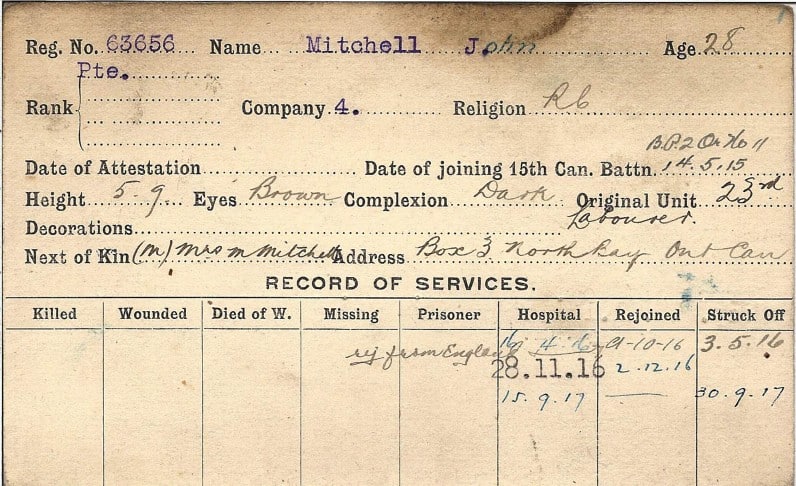 Reg. No. 63656 Name Mitchell John Age 28
Pte.
Rank Company 4. Religion Rc
B.P.2 Or No 11
Date of Attestation Date of joining 15th Can. Battn. 14.5.15
Height 5-9 Eyes Brown Complexion Dark Original Unit 23rd
Decorations Labourer.
Next of Kin (M) Mrs M Mitchell Address Box 3 North Bay Ont Can
RECORD OF SERVICES.
Killed Wounded Died of W. Missing Prisoner Hospital Rejoined Struck Off
rej from England 16 4 16 -10-16 3.5.16
28.11.16 2.12.16
15.9.17 30.9.17